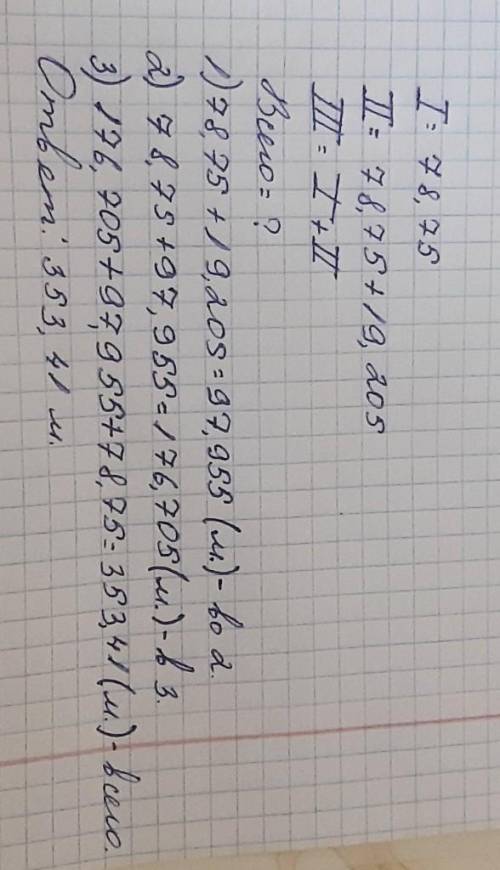 I = 78,75
II = 78,75 + 19,205
III = I + II
Всего = ?
1) 78,75 + 19,205 = 97,955 (м.) - во 2.
2) 78,75 + 97,955 = 176,705 (м.) - в 3.
3) 176,705 + 97,955 + 78,75 = 353,41 (м.) - всего.
Ответ: 353,41 м.